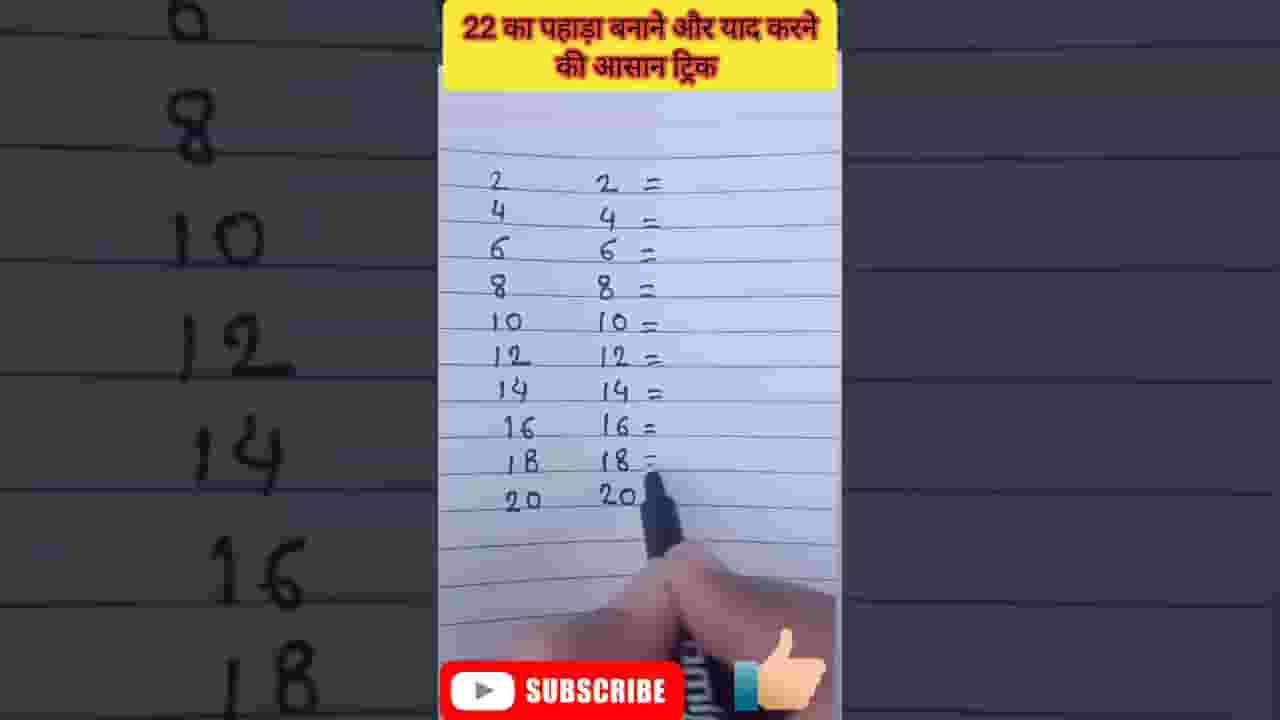 22 का पहाड़ा बनाने और याद करने
की आसान ट्रिक
2 2 =
4 4 =
6 6 =
8 8 =
10 10 =
12 12 =
14 14 =
16 16 =
18 18 =
20 20
SUBSCRIBE
6
8
10
12
14
16
18